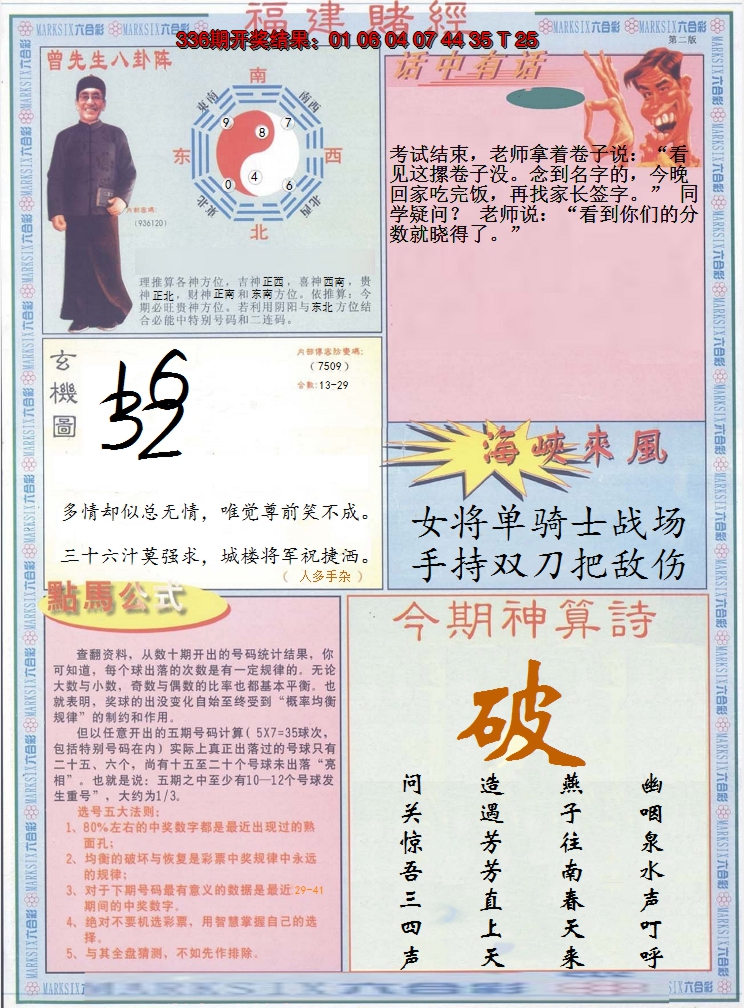 福建賭經
336期开奖结果：01 06 04 07 44 35 T 25
第二版
MARKSIX六合彩
曾先生八卦阵
南
东南
西南
9
8
7
东
西
0
4
6
东北
西北
北
内部密碼:
(936120)
理推算各神方位，吉神正西，喜神西南，贵
神正北，财神正南和东南方位。依推算：今
期必旺贵神方位。若利用阴阳与东北方位结
合必能中特别号码和二连码。
话中有话
考试结束，老师拿着卷子说：“看
见这摞卷子没。念到名字的，今晚
回家吃完饭，再找家长签字。” 同
学疑问？ 老师说：“看到你们的分
数就晓得了。”
玄機圖
内部傳密防變碼:
(7509)
合数:13-29
多情却似总无情，唯觉尊前笑不成。
三十六汁莫强求，城楼将军祝捷洒。
（ 人多手杂 ）
海峽來風
女将单骑士战场
手持双刀把敌伤
點馬公式
查翻资料，从数十期开出的号码统计结果，你
可知道，每个球出落的次数是有一定规律的。无论
大数与小数，奇数与偶数的比率也都基本平衡。也
就表明，奖球的出没变化自始至终受到“概率均衡
规律”的制约和作用。
但以任意开出的五期号码计算( 5X7=35球次，
包括特别号码在内) 实际上真正出落过的号球只有
二十五、六个，尚有十五至二十个号球未出落“亮
相”。也就是说：五期之中至少有10—12个号球发
生重号”，大约为1/3。
选号五大法则：
1、80%左右的中奖数字都是最近出现过的熟
面孔；
2、均衡的破坏与恢复是彩票中奖规律中永远
的规律；
3、对于下期号码最有意义的数据是最近 29-41
期间的中奖数字。
4、绝对不要机选彩票，用智慧掌握自己的选
择。
5、与其全盘猜测，不如先作排除。
今期神算詩
破
幽咽泉水声叮呼
燕子往南春天来
造遇芳芳直上天
问关惊吾三四声